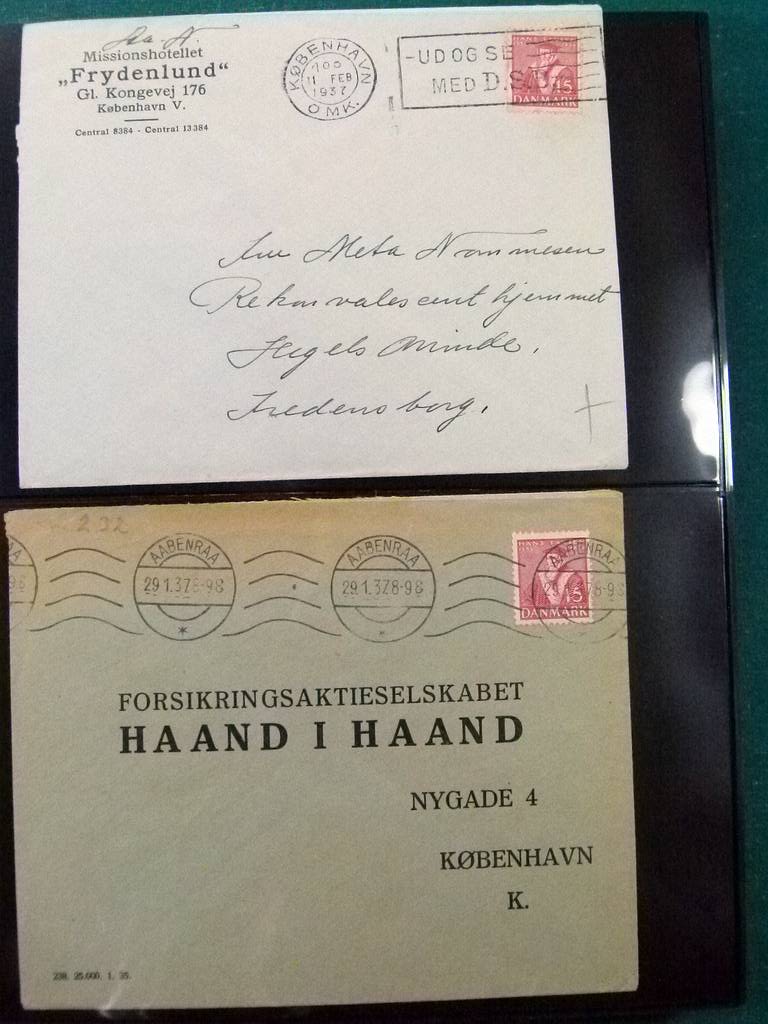 Missionshotellet
„Frydenlund“
Gl. Kongevej 176
København V.
Central 8384 - Central 13384
KØBENHAVN
11 FEB
1937
OMK.
-UD OG SE
MED D.S.B.
15
DANMARK
Meta Nommesen
Rekonvalescenthjemmet
Hegels Minde.
Fredensborg.
232
AABENRAA
29.1.37.8-9
AABENRAA
29.1.37.8-9
AABENRAA
15
DANMARK
FORSIKRINGSAKTIESELSKABET
HAAND I HAAND
NYGADE 4
KØBENHAVN
K.
238. 25.000. 1. 35.